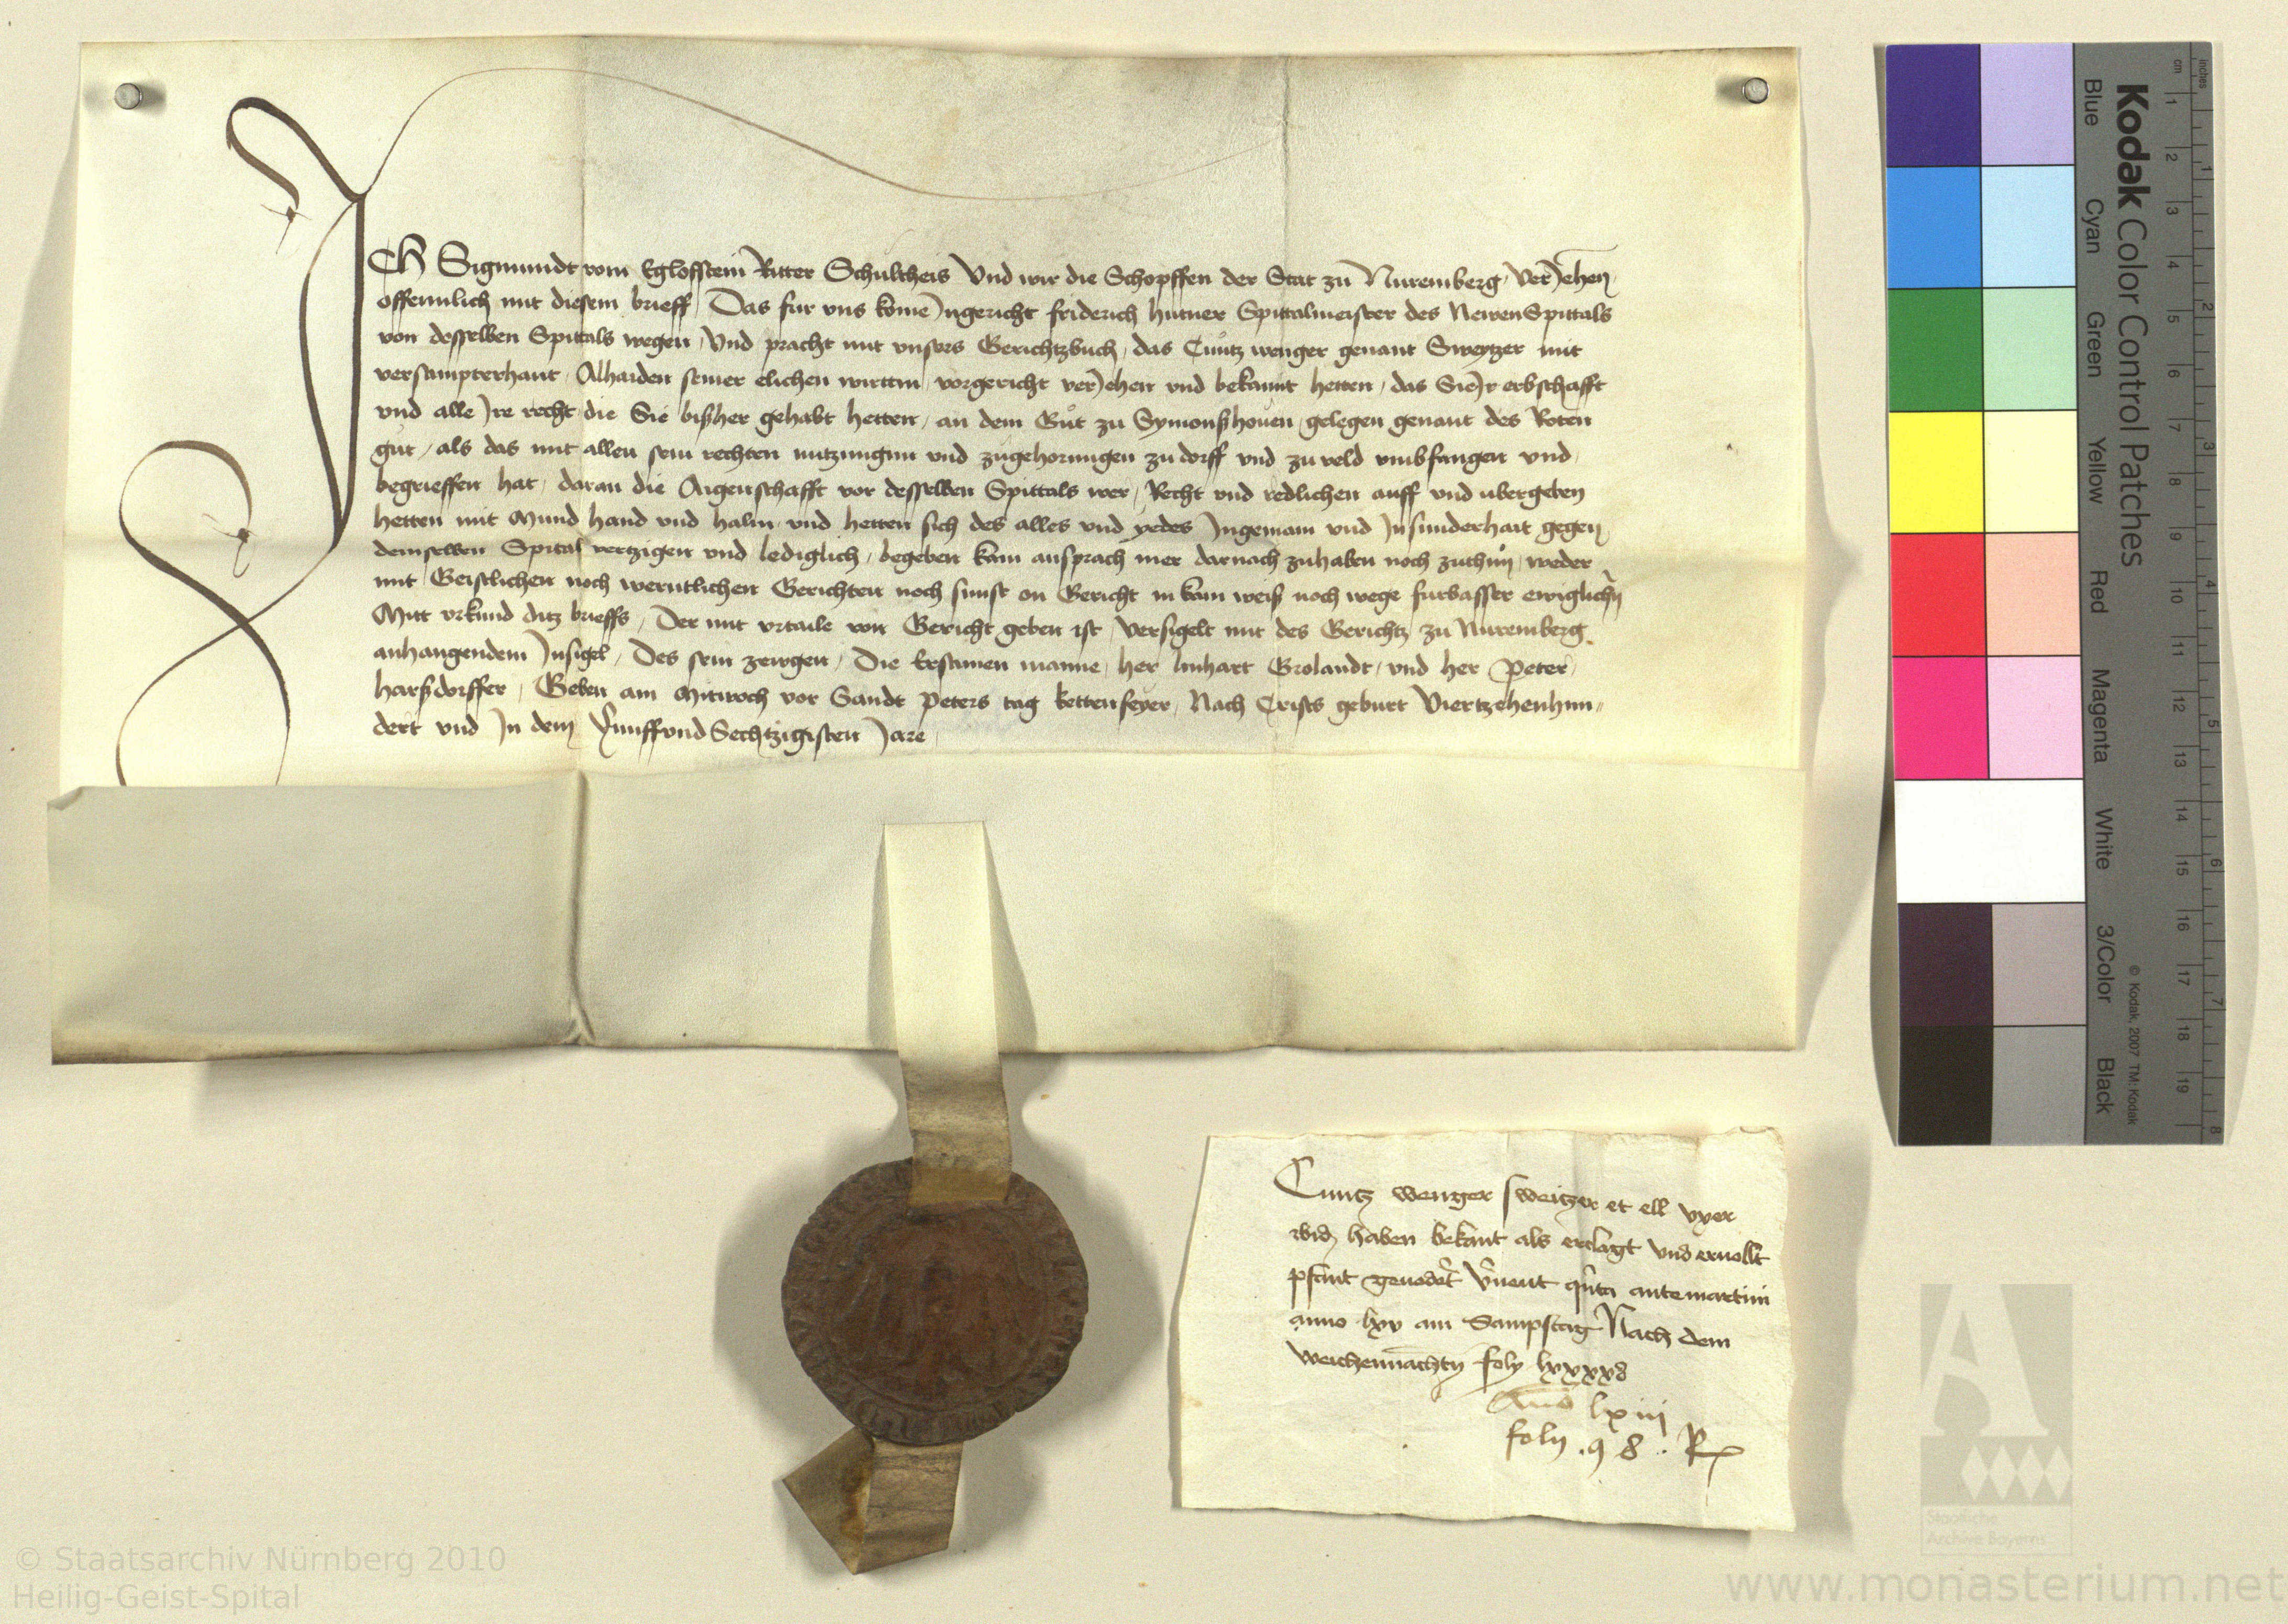 ICh Sigmundt vom Egloffstein Ritter Schultheis Vnd wir die Schopffen der Stat zu Nuremberg Verjehen
offennlich mit diesem brieff Das fur vns kome Ingericht friderich hutner Spittalmeister des Newen Spittals
von desselben Spittals wegen Vnd pracht mit vnsers Gerichtzbuch das Cuntz wenger genant Sweytzer mit
versampterhant Alhaiden seiner elichen wirttin vorgericht verjehen vnd bekannt hetten das Sie Ir erbschafft
vnd alle Ire recht die Sie bißher gehabt hetten an dem Gut zu Symonßhouen gelegen genant des Roten
gut als das mit allen sein rechten nutzungen vnd zugehorungen zu dorff vnd zu veld vmbfangen vnd
begrieffen hat daran die Aigenschafft vor desselben Spittals wer Recht vnd redlichen auff vnd vbergeben
hetten mit Mund hand vnd halm vnd hetten sich des alles vnd yedes Ingemain vnd Insunderhait gegen
demselben Spital vertzigen vnd lediglich begeben kain ansprach mer darnach zuhaben noch zuthun weder
mit Geistlichen noch werntlichen Gerichten noch sunst on Gericht in kain weiß noch wege furbasser ewiglichn
Mitt vrkund ditz brieffs Der mit vrtaile von Gericht geben ist Versigelt mit des Gerichtz zu Nuremberg
anhangendem Insigel Des sein zewgen Die Ersamen manne her linhart Grolandt vnd her Peter
harßdorffer Geben am Mitwoch vor Sandt Peters tag kettenfeyer Nach Crists geburt Viertzehenhun-
dert vnd In dem Funffvnd Sechtzigisten Jare
Cuntz wenger sweitzer et ell vxer
haben bekant als erclagt vnd eruollt
pfant quinta ante martini
anno lxv am Sampstag Nach dem
weichennachtn foly lxxxxv
Ano lxiij
foly 98
Kodak Color Control Patches
Blue Cyan Green Yellow Red Magenta White 3/Color Black
© Kodak, 2007 TM: Kodak
cm 1 2 3 4 5 6 7 8 9 10 11 12 13 14 15 16 17 18 19
inches 1 2 3 4 5 6 7 8
Staatliche
Archive Bayerns
© Staatsarchiv Nürnberg 2010
Heilig-Geist-Spital
www.monasterium.net